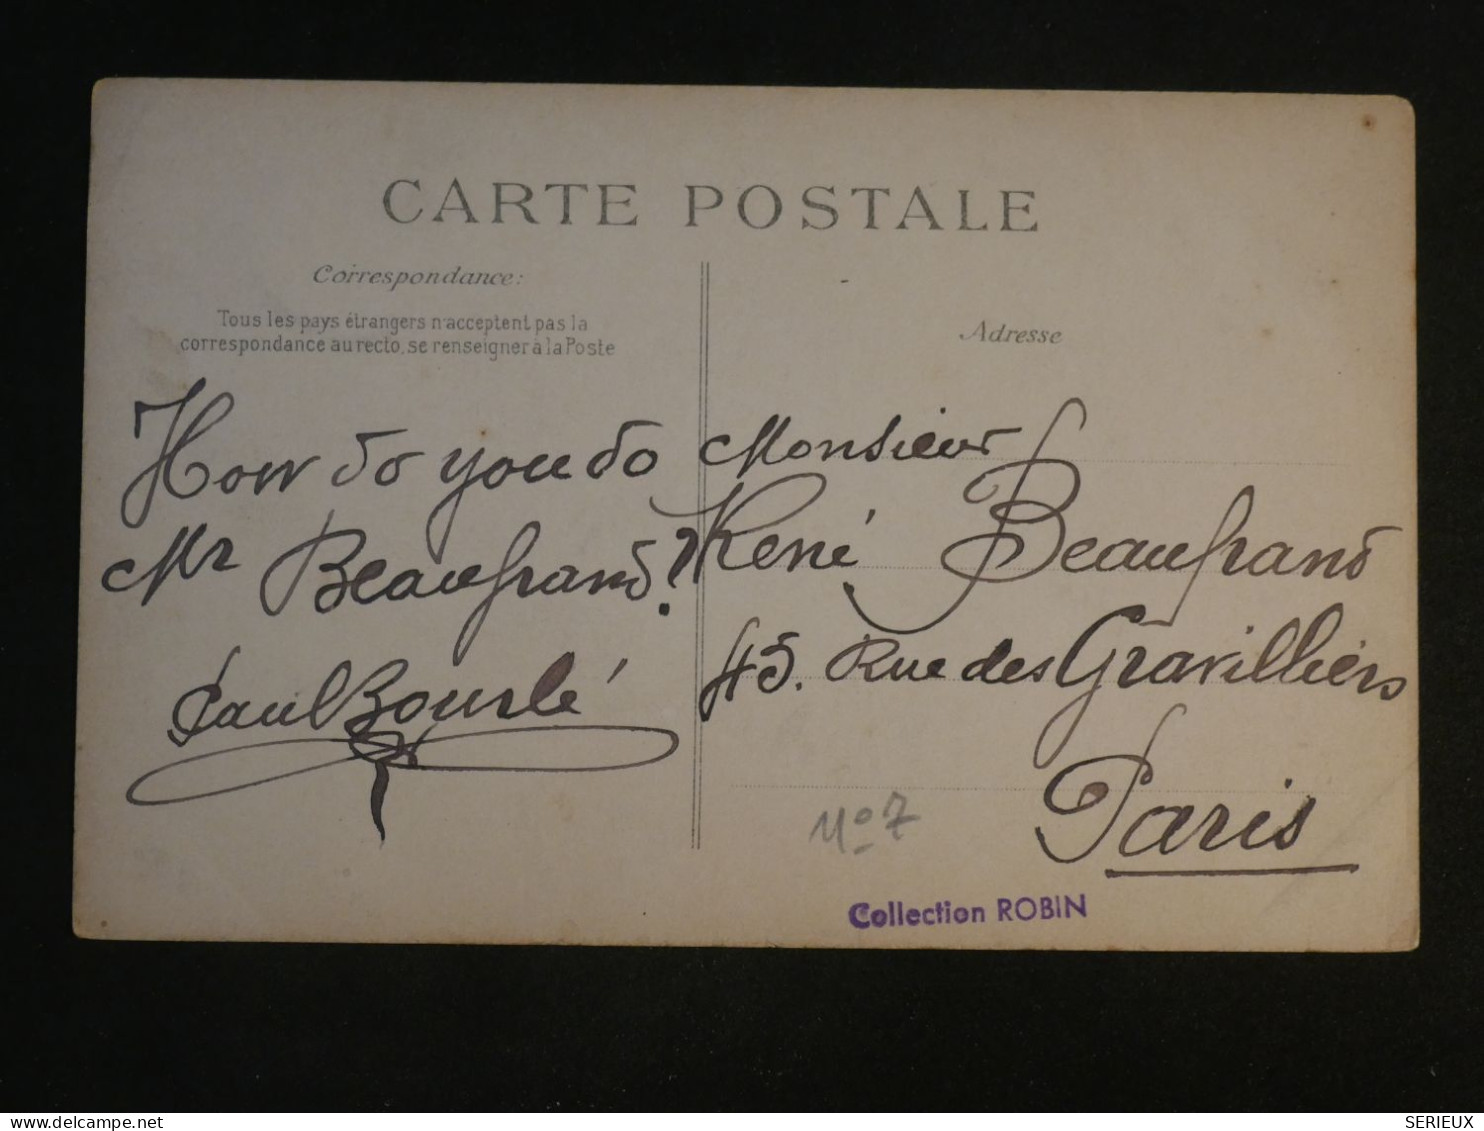 CARTE POSTALE
Correspondance:
Tous les pays étrangers n'acceptent pas la
correspondance au recto, se renseigner à la Poste
How do you do
Mr Beaufrand?
Paul Bourlé
Adresse
Monsieur
René Beaufrand
45. Rue des Gravilliers
Paris
No 7
Collection ROBIN
delcampe.net
SERIEUX